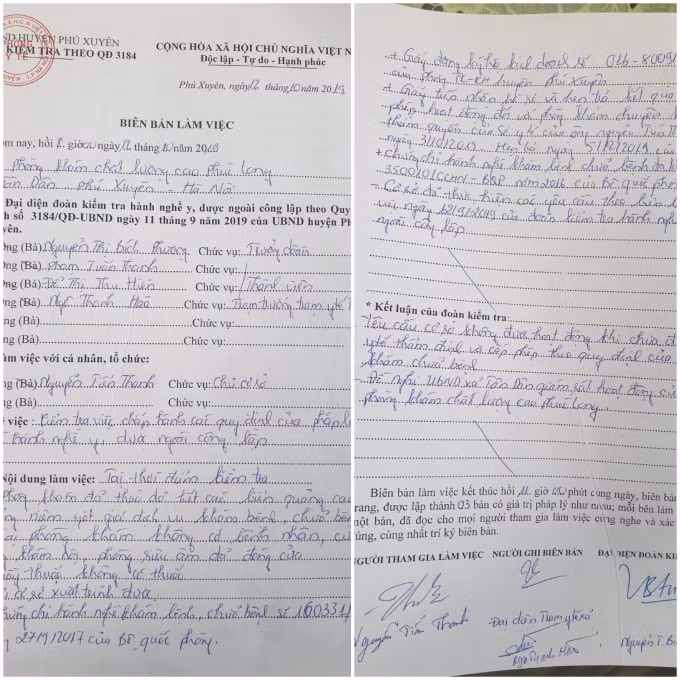 ND HUYỆN PHÚ XUYÊN
KIỂM TRA THEO QĐ 3184
CỘNG HÒA XÃ HỘI CHỦ NGHĨA VIỆT N
Độc lập - Tự do - Hạnh phúc
Phú Xuyên, ngày 12 tháng 10 năm 2019
BIÊN BẢN LÀM VIỆC
ôm nay, hồi giờ ngày 12 tháng 10 năm 2019
phòng khám chất lượng cao phúc long
Tân Dân phú xuyên - Hà Nội
Đại diện đoàn kiểm tra hành nghề y, dược ngoài công lập theo Quy
h số 3184/QĐ-UBND ngày 11 tháng 9 năm 2019 của UBND huyện Ph
yên.
Ông (Bà) Nguyễn Thị Bích Phương Chức vụ: Trưởng đoàn
Ông (Bà) Phạm Tuấn Thanh Chức vụ:
Ông (Bà) Đỗ Thị Thu Hiền Chức vụ: Thành viên
ng (Bà) Ngô Thanh Hảo Chức vụ: Trạm trưởng trạm y tế
ng (Bà) Chức vụ:
ng (Bà) Chức vụ:
àm việc với cá nhân, tổ chức:
ng (Bà) Nguyễn Tiến Thanh Chức vụ: Chủ cơ sở
ng (Bà) Chức vụ:
việc: Kiểm tra việc chấp hành các quy định của pháp
hành nghề y, dược ngoài công lập
Nội dung làm việc: Tại thời điểm kiểm tra
Phòng khám đã tháo dỡ hết các biển quảng cáo
niêm yết giá dịch vụ khám bệnh, chữa bệnh
phòng khám không có bệnh nhân, cử
khám nội, phòng siêu âm đã đóng cửa
thuốc không có thuốc
cơ sở xuất trình được
chứng chỉ hành nghề khám bệnh, chữa bệnh số 160331
27/9/2017 của Bộ quốc phòng.
+ Giấy đăng ký hộ kinh doanh số 01b-80091
của phòng TC-KH huyện phú Xuyên
+ Giấy tiếp nhận hồ sơ và hẹn trả kết quả
phép hoạt động đối với phòng khám chuyên kh
thẩm quyền của sở y tế của ông nguyễn Tiến Th
ngày 3/10/2019. Hẹn trả ngày 5/12/2019 của
+ chứng chỉ hành nghề khám bệnh chữa bệnh
CCHN - BQP năm 2016 của Bộ quốc phòn
- Cơ sở đã thực hiện các yêu cầu theo biên b
việc ngày của đoàn kiểm tra hành nghề
ngoài công lập
* Kết luận của đoàn kiểm tra:
Yêu cầu cơ sở không được hoạt động khi chưa đ
y tế thẩm định và cấp phép theo quy định của
khám chữa bệnh
- Đề nghị UBND xã Tân Dân giám sát hoạt động của
phòng khám chất lượng cao phúc long
Biên bản làm việc kết thúc hồi 11 giờ phút cùng ngày, biên bản
rang, được lập thành 03 bản có giá trị pháp lý như nhau; mỗi bên làm
một bản, đã đọc cho mọi người tham gia làm việc cùng nghe và xác
úng, cùng nhất trí ký biên bản.
GƯỜI THAM GIA LÀM VIỆC NGƯỜI GHI BIÊN BẢN ĐẠI DIỆN ĐOÀN KI
Nguyễn Tiến Thanh
Đại diện Trạm y tế xã
Ngô Thanh Hảo
Nguyễn T. B